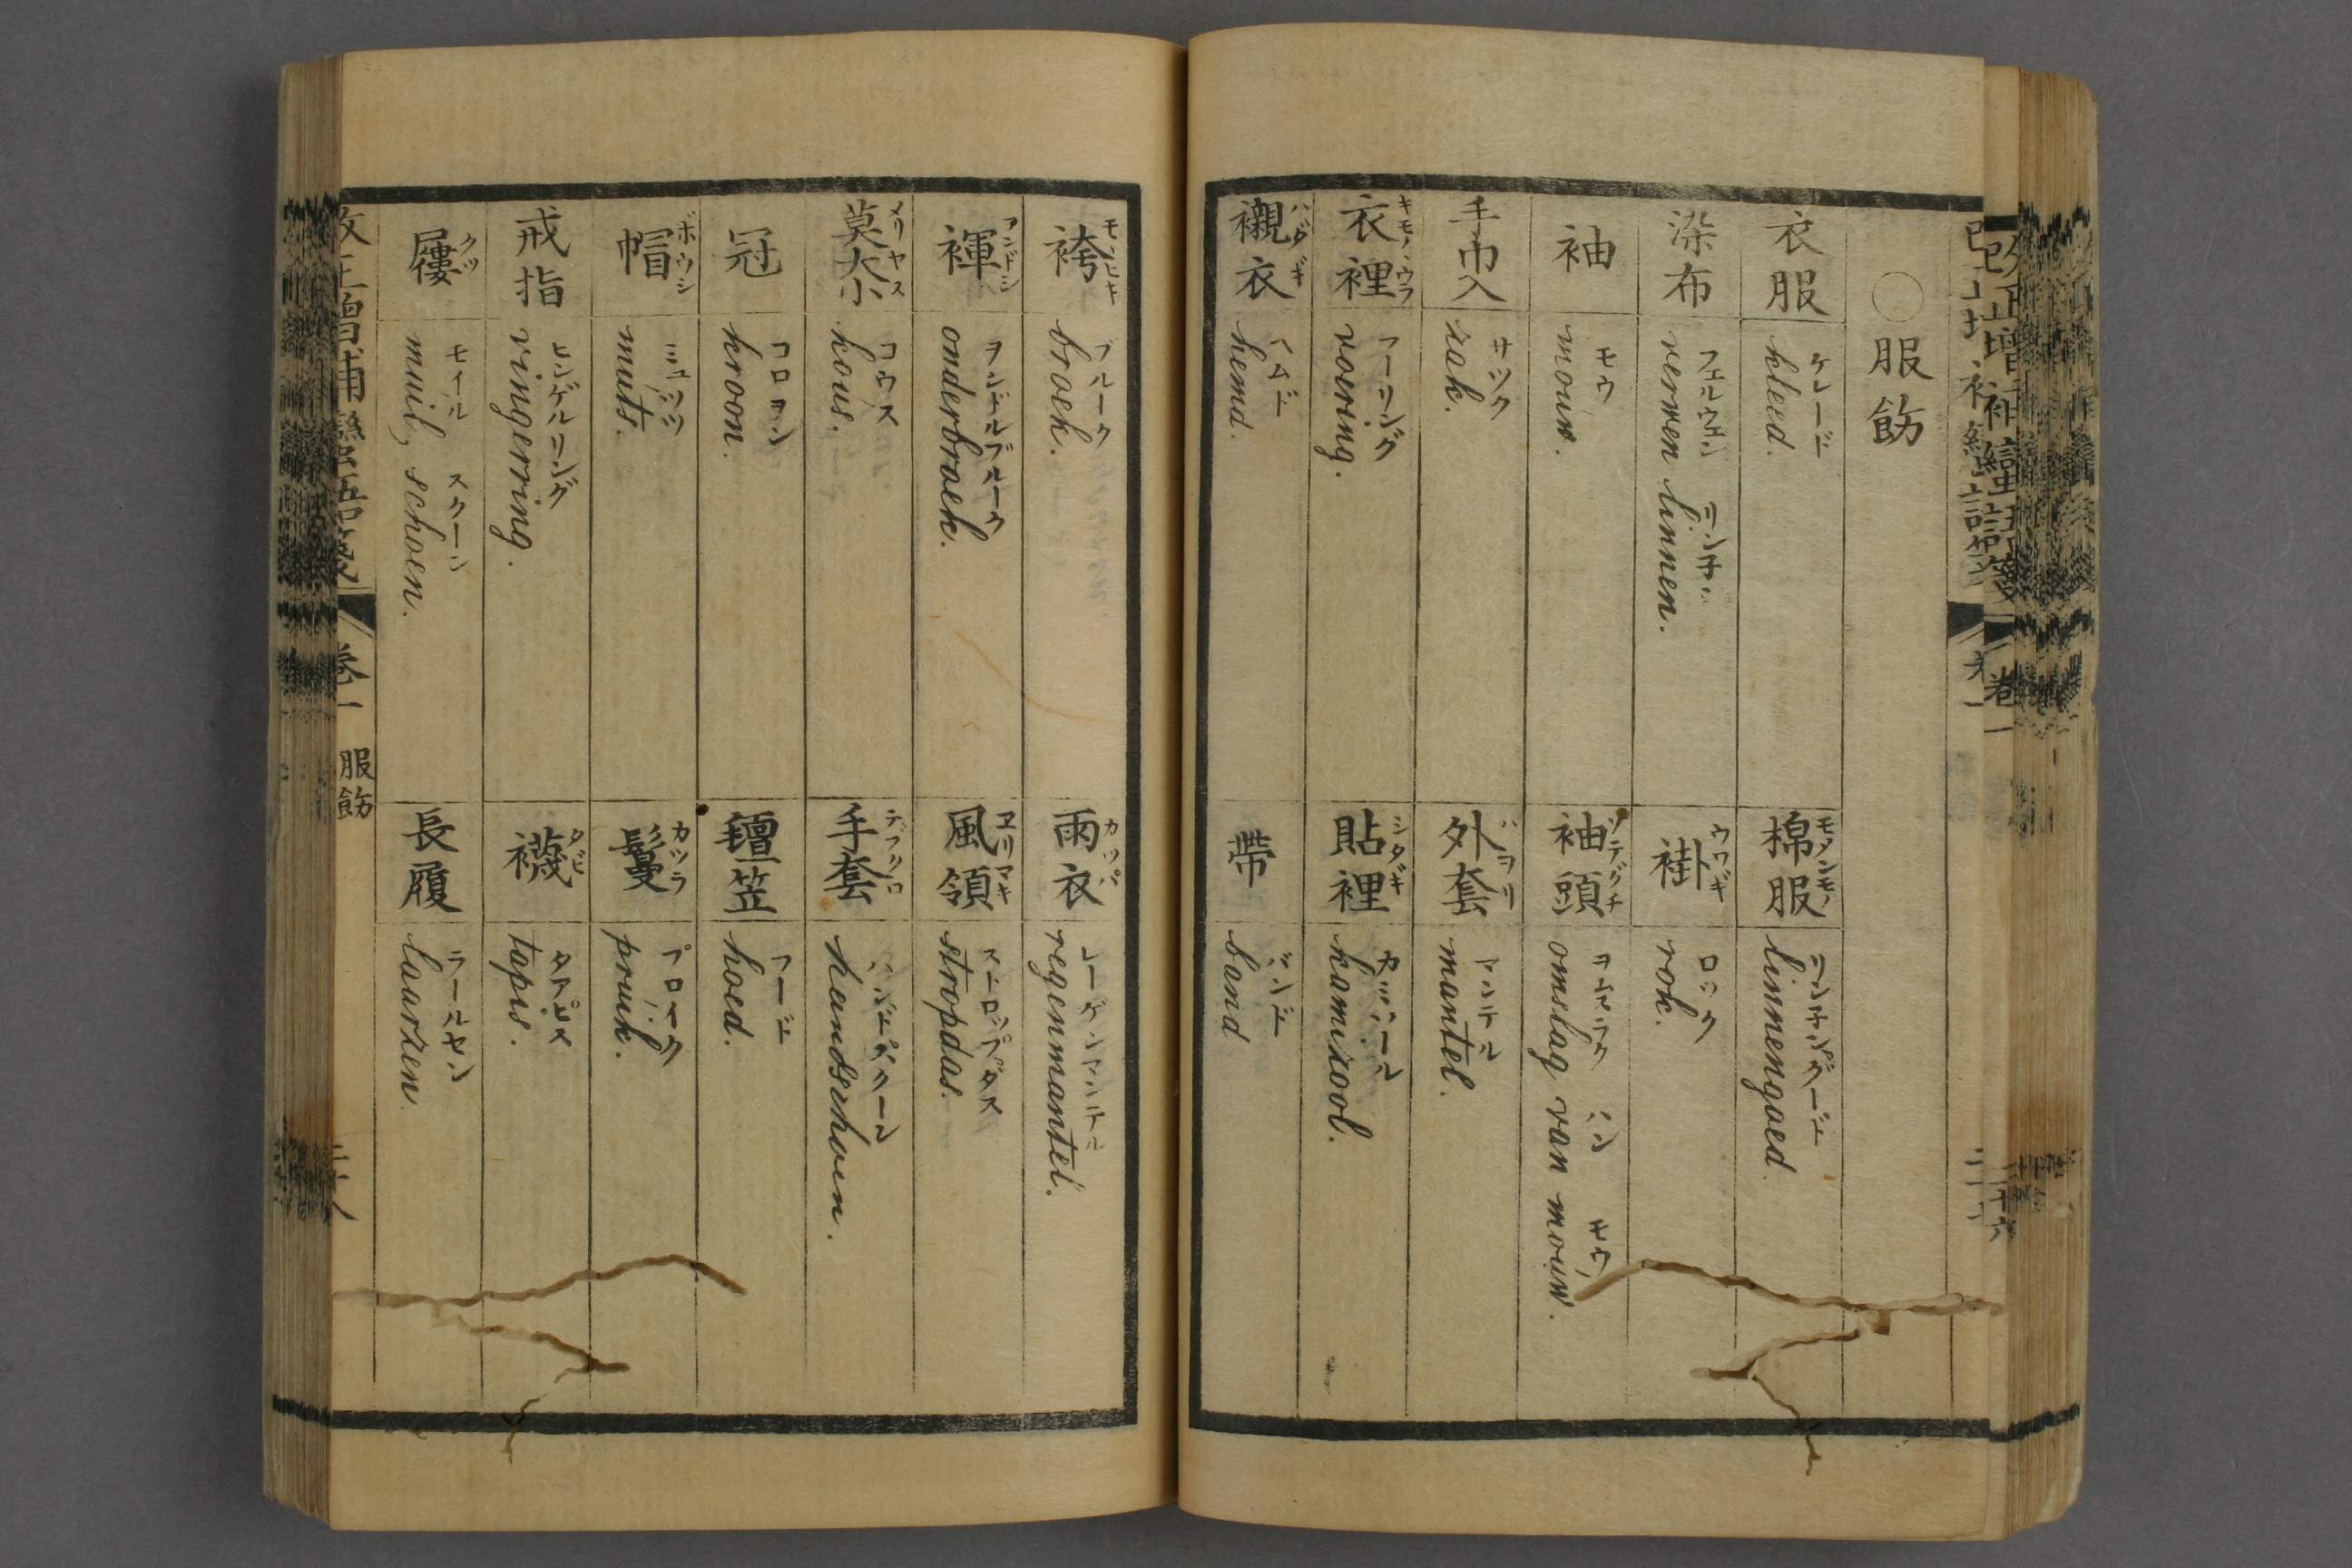 ○服飭
衣服
ケレード
kleed.
棉服
モメンモノ
リンネングード
linnengoed
染布
フェルウェン リンネン
verwen linnen.
褂
ウワギ
ロック
rok.
袖
モウ
mouw.
袖頭
ソデグチ
ヲムスラク ハン モウ
omslag van mouw.
手巾入
サック
zak.
外套
ハヲリ
マンテル
mantel.
衣裡
キモノヽウラ
フーリング
voering.
貼裡
シタギ
カミソール
kamizool.
襯衣
ハダギ
ヘムド
hemd.
帶
バンド
band
袴
モヽヒキ
ブルーク
broek.
雨衣
カッパ
レーゲンマンテル
regenmantel.
褌
フンドシ
ヲンドルブルーク
onderbroek.
風領
ヱリマキ
ストロップダス
stropdas.
莫大小
メリヤス
コウス
kous.
手套
テブクロ
ハンドスクーン
handschoen.
冠
コロヲン
kroon.
氊笠
フード
hoed.
帽
ボウシ
ミュッツ
muts.
鬘
カツラ
プロイク
pruik.
戒指
ヒンゲルリング
vingerring.
襪
タビ
タアピス
tapis.
屨
クツ
モイル スクーン
muil, schoen.
長履
ラールセン
laarzen.
改正增補蠻語箋 卷一 服飭